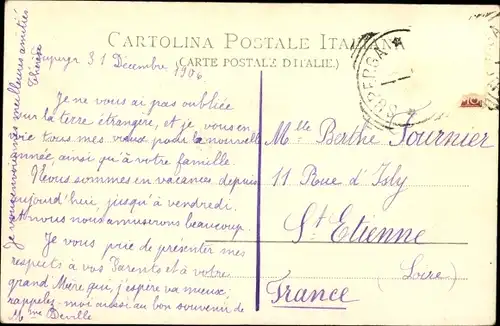 CARTOLINA POSTALE ITALIANA
(CARTE POSTALE D'ITALIE.)
31 Décembre 1906
Je ne vous ai pas oubliée
sur la terre étrangère, et je vous envoie
tous mes vœux pour la nouvelle
année ainsi qu'à votre famille.
Nous sommes en vacances depuis
aujourd'hui, jusqu'à vendredi.
nous nous amuserons beaucoup.
Je vous prie de présenter mes
respects à vos Parents et à votre
grand'Mère qui, j'espère va mieux;
rappelez-moi aussi au bon souvenir de
Mme Deville
Je vous envoie mes meilleures amitiés
Thérèse
Mlle Berthe Fournier
11 Rue d'Isly
St Etienne
(Loire)
France